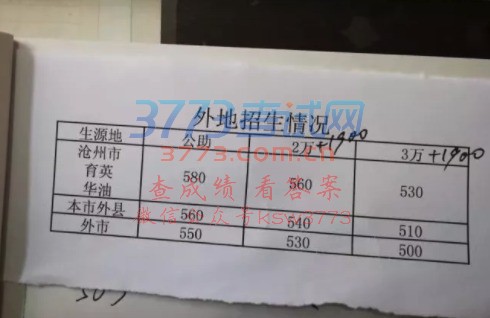 3773考试网
外地招生情况
生源地 公助 2万+1900 3万+1900
沧州市
育英 580 560 530
华油
本市外县 560 540 510
外市 550 530 500
3773.com.cn
查成绩 看答案
微信公众号ksw3773